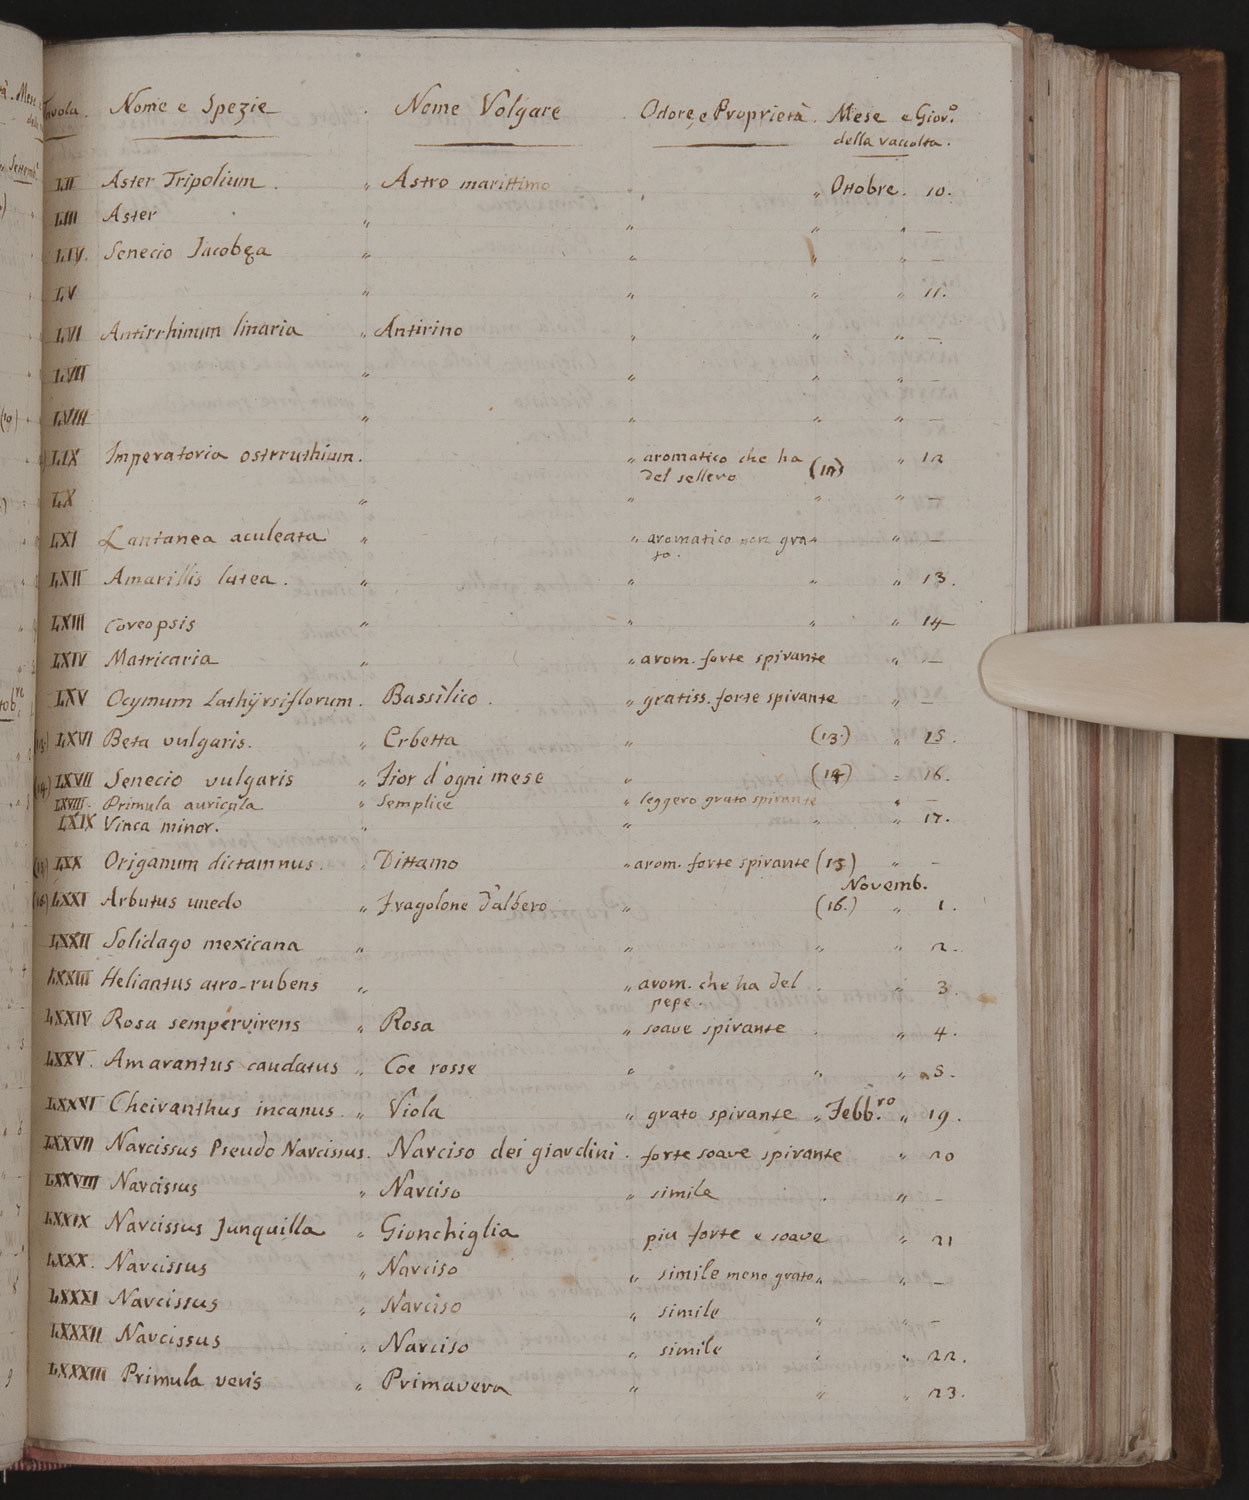 Tavola. Nome e Spezie . Nome Volgare . Odore, e Proprietà . Mese e Gior.º
della raccolta.
LII Aster Tripolium . „ Astro marittimo „ „ Ottobre. 10.
LIII Aster „ „ „ „ —
LIV. Senecio Jacobęa „ „ „ —
LV „ „ „ „ 11.
LVI Antirrhinum linaria „ Antirino „ „ „ —.
LVII „ „ „ „ —
LVIII „ „ „ „ —
LIX Imperatoria ostrruthium. „ aromatico che ha (12) „ 12
del sellero
LX „ „ „ „ —
LXI Lantanea aculeata „ „ aromatico non gra„ „ —
to.
LXII Amarillis lutea . „ „ „ „ 13.
LXIII Coreopsis „ „ „ „ 14
LXIV Matricaria „ „ arom. forte spirante „ —
LXV Ocymum Lathÿrsiflorum . Bassilico . „ gratiss. forte spirante „ —
(13.) LXVI Beta vulgaris. „ Erbetta „ (13.) „ 15.
(14) LXVII Senecio vulgaris „ Fior d'ogni mese „ (14) „ 16.
LXVIII. Primula auricula „ Semplice „ leggero grato spirante „ —
LXIX Vinca minor. „ „ „ „ 17.
(15) LXX Origanum dictamnus. „ Dittamo „ arom. forte spirante (15) „ —
Novemb.
(16) LXXI Arbutus unedo „ Fragolone d'albero „ (16.) „ 1.
LXXII Solidago mexicana „ „ „ „ 2.
LXXIII Heliantus atro-rubens „ „ arom. che ha del . „ 3.
pepe.
LXXIV Rosa sempervirens „ Rosa „ soave spirante . „ 4.
LXXV. Amarantus caudatus „ Coe rosse „ „ „ 5.
LXXVI Cheiranthus incanus. „ Viola „ grato spirante „ Febb.ro „ 19.
LXXVII Narcissus Pseudo Narcissus. Narciso dei giardini . forte soave spirante „ 20
LXXVIII Narcissus „ Narciso „ simile . „ —
LXXIX Narcissus Junquilla „ Gionchiglia piu forte e soave „ 21
LXXX. Narcissus „ Narciso „ simile meno grato„ „ —
LXXXI Narcissus „ Narciso „ simile „ „ —
LXXXII Narcissus „ Narciso „ simile „ „ 22.
LXXXIII Primula veris „ Primavera „ „ „ 23.